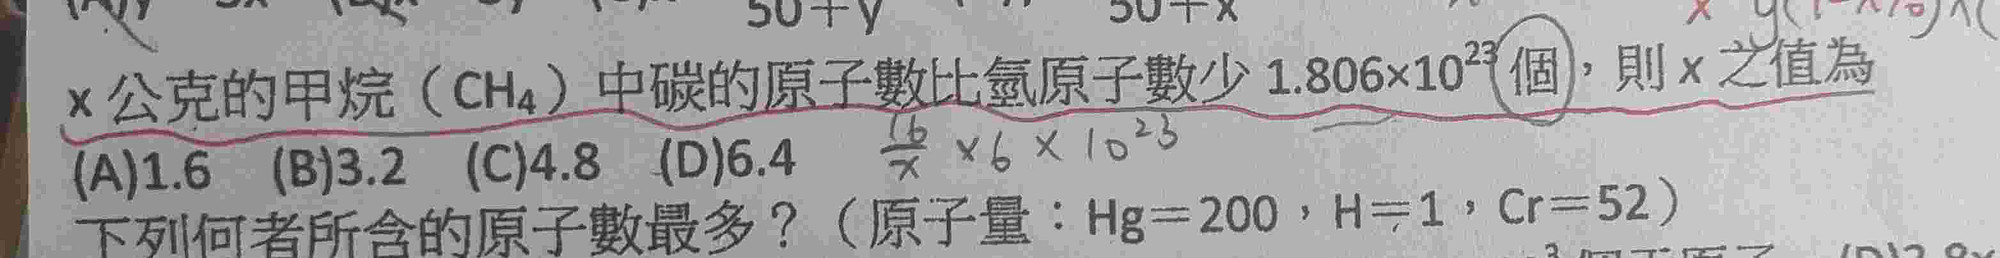 50+y 50+x
x 公克的甲烷（CH₄）中碳的原子數比氫原子數少 1.806×10²³個，則 x 之值為
(A)1.6 (B)3.2 (C)4.8 (D)6.4 16/x × 6 × 10²³
下列何者所含的原子數最多？（原子量：Hg＝200，H＝1，Cr＝52）